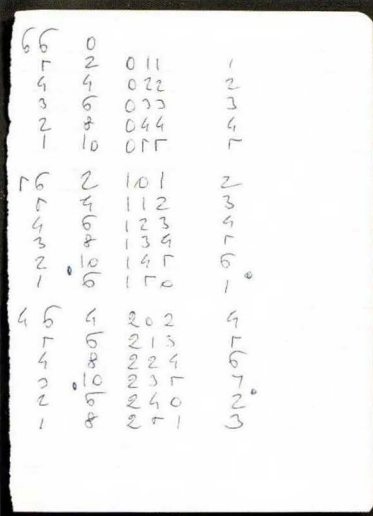 6 6 0
5 2 0 1 1 1
4 4 0 2 2 2
3 6 0 3 3 3
2 8 0 4 4 4
1 10 0 5 5 5
5 6 2 1 0 1 2
5 4 1 1 2 3
4 6 1 2 3 4
3 8 1 3 4 5
2 .10 1 4 5 6
1 6 1 5 0 1.
4 6 4 2 0 2 4
5 6 2 1 3 5
4 8 2 2 4 6
3 .10 2 3 5 7
2 6 2 4 0 2.
1 8 2 5 1 3